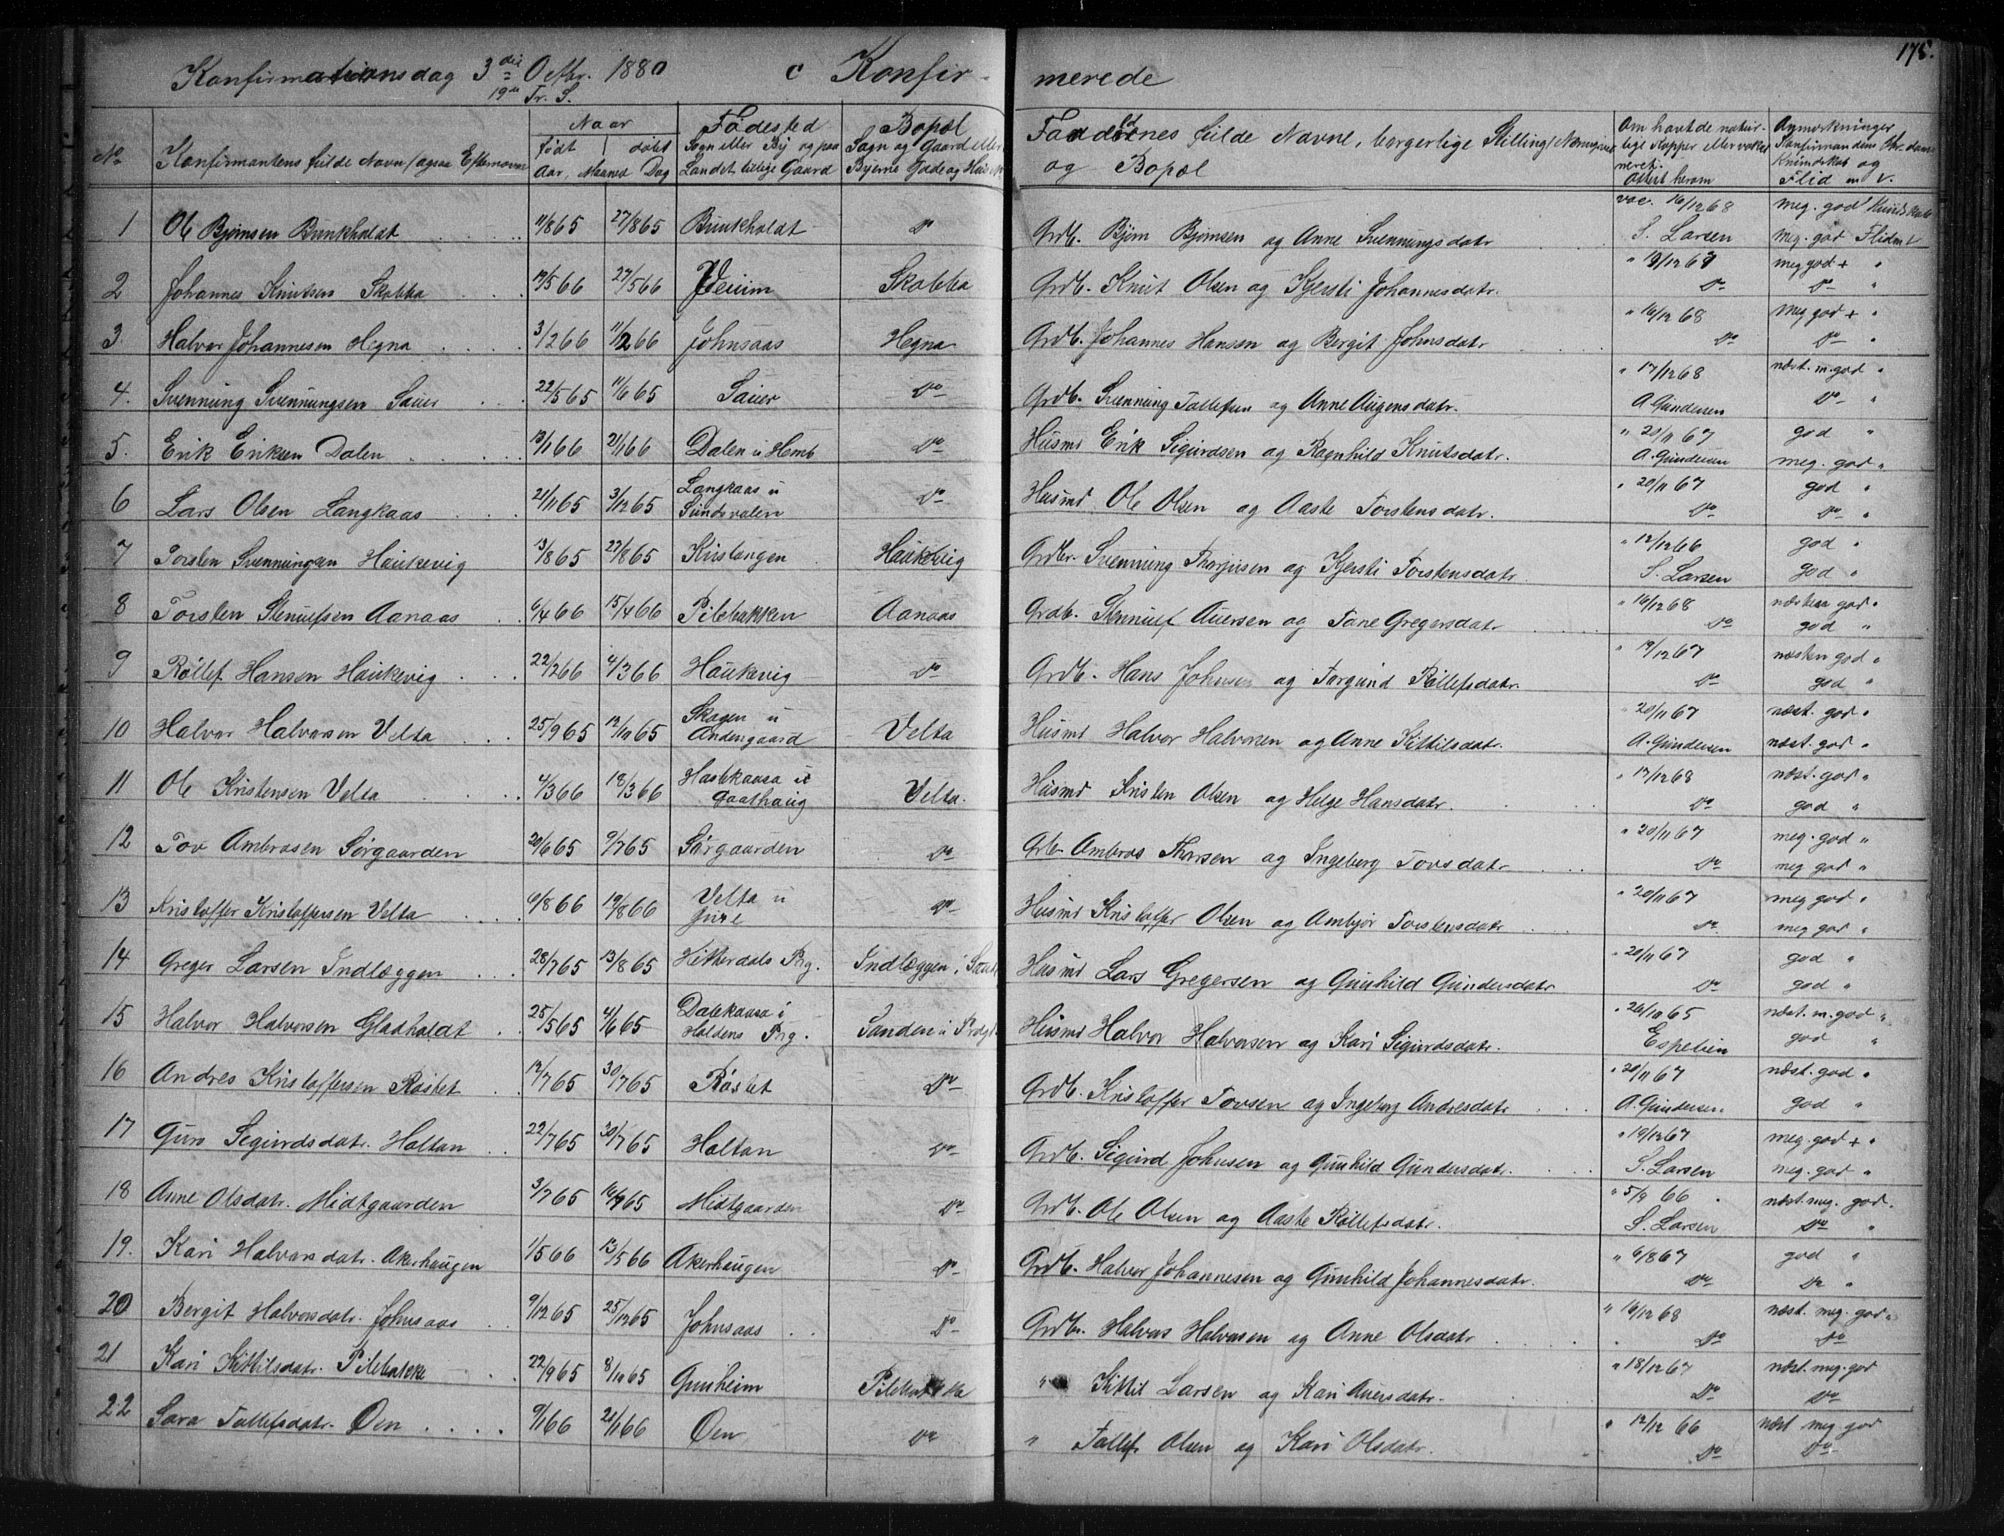 175.
Konfirmationsdag 3die Octbr. 1880 c Konfir-
merede
19de Tr. S.
No
Konfirmantens fulde Navn (ogsaa Efternavn
Naar
født | døbt
Aar, Maaned Dag
Fødested
Sogn eller By og paa
Landet tillige Gaard
Bopæl
Sogn og Gaard eller
Byerne Gade og Hus No
Fadderes fulde Navne, borgerlige Stilling
og Bopæl
Om havt de natur-
lige Kopper eller vakci-
neret
Attest herom
Anmærkninger
Konfirmandens Kr. doms
Kundskab og
Flid m. v.
1 Ole Bjørnsen Bunkholdt 11/8 65 27/8 65 Bunkholdt Do Grdb. Bjørn Bjørnsen og Anne Svenningsdatr vac. 16/12 68 S. Larsen meg. god Kundskab meg. god Flid
2 Johannes Knutsen Skobba 17/5 66 27/5 66 Veiim Skobba Grdb. Knut Olsen og Kjersti Johannesdatr. " 19/12 67 Do meg god + " Do "
3. Halvor Johannesen Hegna 3/2 66 11/2 66 Johnsaas Hegna Grdb. Johannes Hansen og Bergit Johnsdatr " 16/12 68 Do meg god + " Do "
4. Svennung Svennungsen Sauer 22/5 65 11/6 65 Sauer Do Grdb. Svennung Tollefsen og Anne Augensdatr. " 17/12 68 A Gundersen næst. m. god " Do "
5. Erik Eriksen Dalen 13/1 66 21/1 66 Dalen u Hemb Do Husmd Erik Sigurdsen og Ragnhild Knutsdatr. " 20/11 67 A. Gundersen god " meg. god "
6 Lars Olsen Langkaas 21/11 65 3/12 65 Langkaas u Sundsvalen Do Husmd Ole Olsen og Aaste Torstensdatr. " 20/11 67 Do god " Do "
7 Torsten Svenningsen Haukevig 13/8 65 27/8 65 Kirstangen Haukevig Grdbr. Svennung Thorjusen og Kjersti Torstensdatr " 12/12 66 S. Larsen god " god "
8 Torsten Stenulfsen Aanaas 6/4 66 15/4 66 Pilebakken Aanaas Grdb. Stenulf Auersen og Tone Gregersdatr " 16/12 68 Do næsten god " god "
9 Røllef Hansen Haukevig 22/2 66 4/3 66 Haukevig Do Grdb. Hans Johnsen og Torgund Røllefsdatr. " 19/12 67 Do næsten god " god "
10 Halvor Halvorsen Velta 25/9 65 12/10 65 Skogen u Andengaard Velta Husmd Halvor Halvorsen og Anne Kittilsdatr. " 20/11 67 A. Gundersen næst. god " næst. god "
11 Ole Kristensen Velta 4/3 66 18/3 66 Haslekaasa u Gaathaug Velta. Husmd Kristen Olsen og Helge Hansdatr. " 17/12 68 Do næst. god " god "
12 Tov Ambrosen Sørgaarden 20/6 65 9/7 65 Sørgaarden Do Grb. Ambros Thorsen og Ingeborg Tovsdatr " 20/11 67 Do meg. god " meg god "
13 Kristoffer Kristoffersen Velta 9/8 66 19/8 66 Velta u Juve Do Husmd Kristoffer Olsen og Ambjør Torstensdatr " 20/11 67 Do meg god " meg god "
14 Greger Larsen Indlæggen 28/7 65 13/8 65 Hitterdals Prg. Indlæggen i Sand Husmd Lars Gregersen og Gunhild Gundersdatr " 20/11 67 Do god " god "
15 Halvor Halvorsen Gladholdt 25/5 65 4/6 65 Dalekaasa i Holdens Prg. Sanden u Husmd Halvor Halvorsen og Kari Sigurdsdatr. " 26/10 65 Espelien næst. m. god " god "
16 Andres Kristoffersen Røstet 12/7 65 30/7 65 Røstet Do Grdb. Kristoffer Tovsen og Ingeborg Andresdatr " 20/11 67 A. Gundersen næst. god " god "
17 Guro Sigurdsdatr. Holtan 22/7 65 30/7 65 Holtan Do Grdb. Sigurd Johnsen og Gunhild Gundersdatr. " 19/12 67 S. Larsen meg. god + " meg. god "
18 Anne Olsdatr. Midtgaarden 3/7 65 16/7 65 Midtgaarden Do Grdb. Ole Olsen og Aaste Røllefsdatr. " 5/9 66 S. Larsen næst. meg. god. Do "
19. Kari Halvorsdatr. Akerhaugen 1/5 66 13/5 66 Akerhaugen Do Grdb. Halvor Johannesen og Gunhild Johannesdatr. " 6/8 67 Do god " Do "
20 Bergit Halvorsdatr. Johnsaas 9/12 65 25/12 65 Johnsaas Do Grdbr. Halvor Halvorsen og Anne Olsdatr " 16/12 68 Do næst. meg. god " Do
21 Kari Kittilsdatr. Pilebakke 22/9 65 8/10 65 Gunheim Pilebakke " Kittil Larsen og Kari Auersdatr. " 18/12 67 Do næst. meg. god Do
22 Sara Tollefsdatr. Øen 9/1 66 21/1 66 Øen Do " Tollef Olsen og Kari Olsdatr. " 12/12 66 Do næst meg god Do